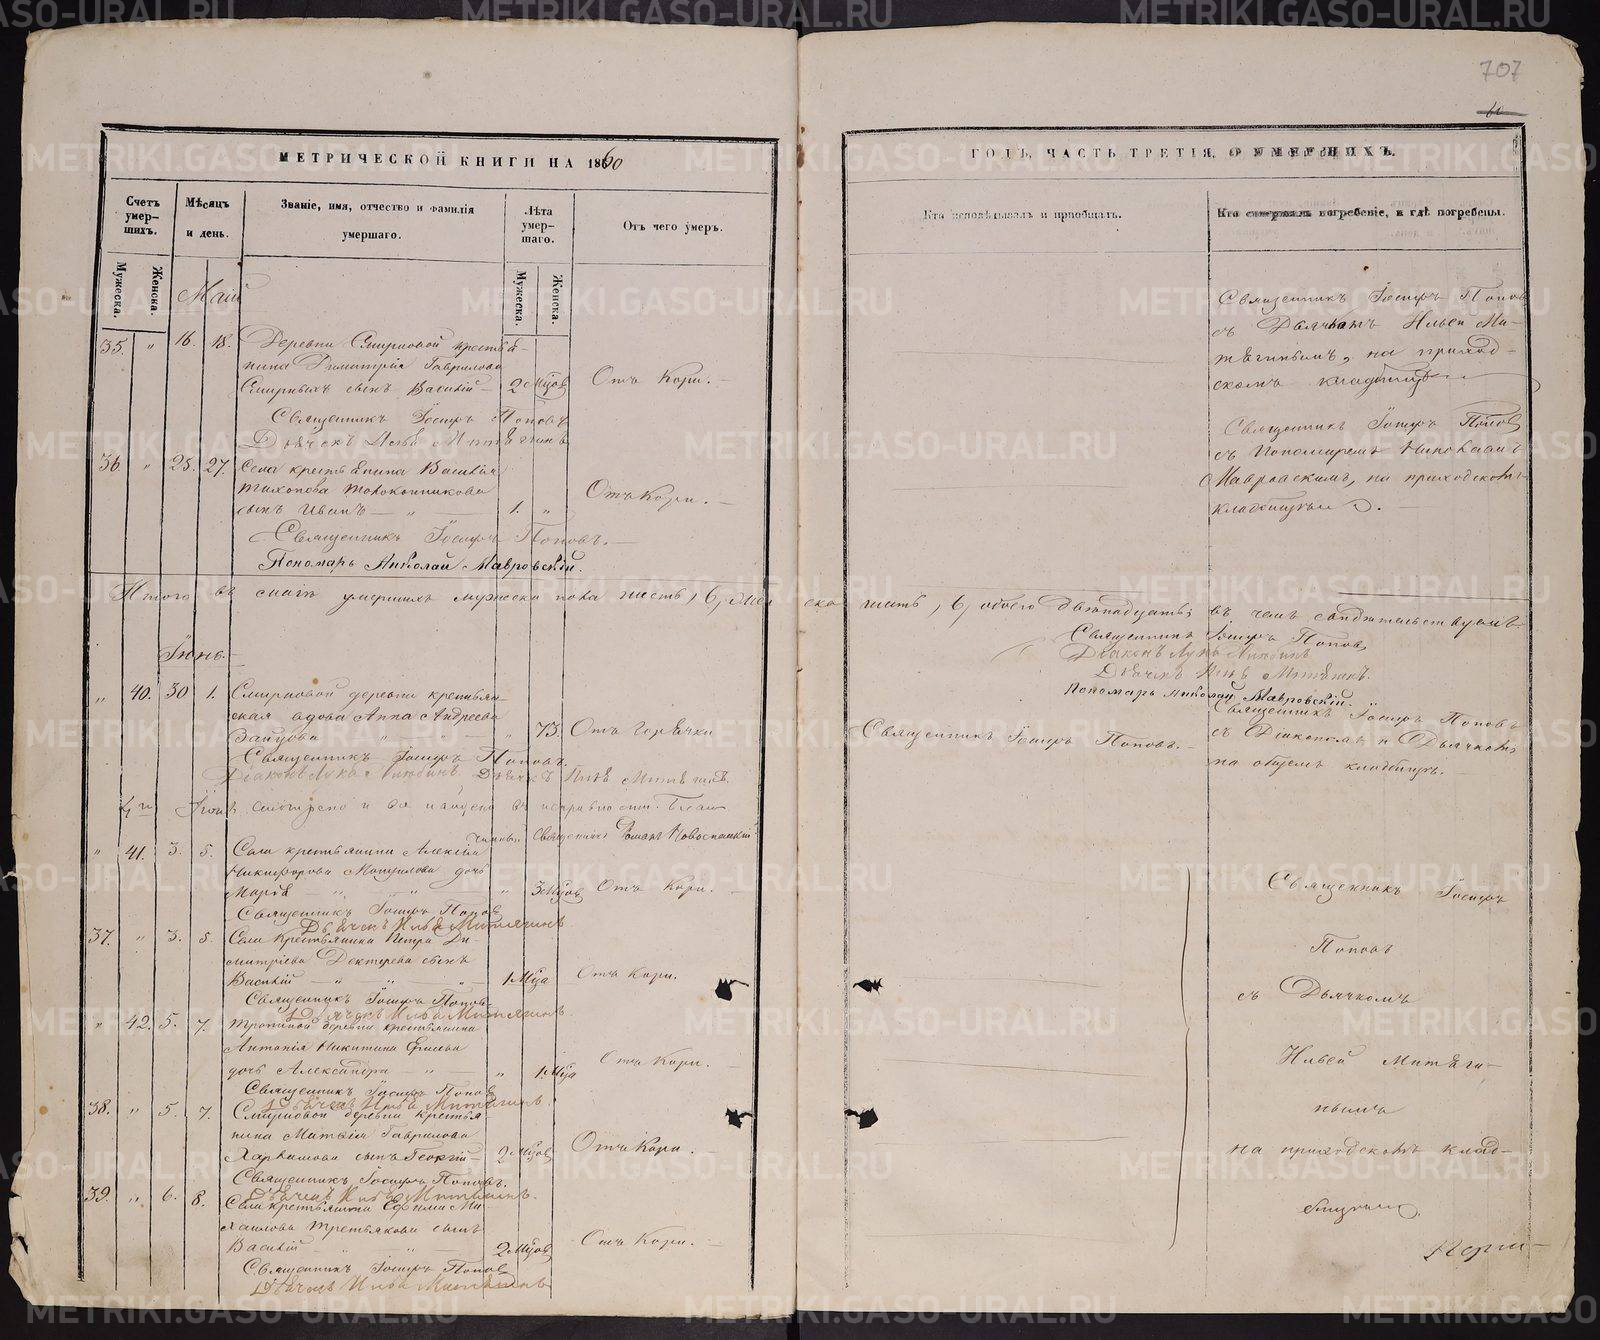 707
60
МЕТРИЧЕСКОЙ КНИГИ НА 1860
ГОДЪ, ЧАСТЬ ТРЕТІЯ, О УМЕРШИХЪ.
Счетъ умер-
шихъ.
Мужеска.
Женска.
Мѣсяцъ
и день.
Званіе, имя, отчество и фамилія
умершаго.
Лѣта
умер-
шаго.
Мужеска.
Женска.
Отъ чего умеръ.
Кто исповѣдывалъ и пріобщалъ.
Кто совершалъ погребеніе, и гдѣ погребены.
Маій
35. " 16. 18. Деревни Смирновой крестья-
нина Димитрія Гаврилова
Смирныхъ сынъ Василій — 2 мѣсѧ Отъ Кори. —
Священникъ Іосифъ Поповъ
Дьячекъ Илья Митягинъ
Священникъ Іосифъ Поповъ
съ Дьячкомъ Ильей Ми-
тягинымъ, на приход-
скомъ кладбищѣ
36 " 25. 27. Села крестьянина Василія
Тихонова Толоконникова
сынъ Иванъ — " — 1. " Отъ Кори. —
Священникъ Іосифъ Поповъ. —
Пономарь Николай Мавровскій.
Священникъ Іосифъ Поповъ
съ Пономаремъ Николаемъ
Мавровскимъ, на приходскомъ
кладбищѣ.
Итого въ маіѣ умершихъ мужеска пола шесть, 6, жен ска шесть, 6, обоего двѣнадцать; въ чемъ свидѣтельствуемъ
Священникъ Іосифъ Поповъ
Діаконъ Лука
Дьячекъ Илья Митягинъ.
Пономарь Николай Мавровскій.
Іюнь. —
" 40. 30 1. Смирновой деревни крестьян-
ская вдова Анна Андреева
Зайцова " — " 73. Отъ Горячки
Священникъ Іосифъ Поповъ.
Діаконъ Лука Дьячекъ Илья Митягинъ.
Священникъ Іосифъ Поповъ. —
Священникъ Іосифъ Поповъ
съ Діакономъ и Дьячкомъ
на общемъ кладбищѣ. —
Іюня смотрено и найдено въ исправности. Благо-
чинный Священникъ Новоспасскій
" 41. 3. 5. Села крестьянина Алексія
Никифорова дочь
Марія — " " " 3 мѣсѧ Отъ Кори. —
Священникъ Іосифъ Поповъ
Дьячекъ Илья Митягинъ
37. " 3. 5. Села Крестьянина Петра Ди-
митріева Дектерева сынъ
Василій — " " " 1 мѣсѧ Отъ Кори.
Священникъ Іосифъ Поповъ.
Дьячекъ Илья Митягинъ
" 42. 5. 7. деревни крестьянина
Антонія Никитина
дочь Александра — " " 1 мѣсѧ Отъ Кори. —
Священникъ Іосифъ Поповъ
Дьячекъ Илья Митягинъ
38. " 5. 7. Смирновой деревни крестья
нина Матвія Гаврилова
сынъ Георгій — 2 мѣсѧ Отъ Кори.
Священникъ Іосифъ Поповъ.
Дьячекъ Илья Митягинъ.
39. " 6. 8. Села крестьянина Ефима Ми-
хаилова Третьякова сынъ
Василій — " " 2 мѣсѧ Отъ Кори. —
Священникъ Іосифъ Поповъ
Дьячекъ Илья Митягинъ
Священникъ Іосифъ
Поповъ
съ Дьячкомъ
Ильей Митяги-
нымъ
на приходскомъ клад-
бищѣ
METRIKI.GASO-URAL.RU